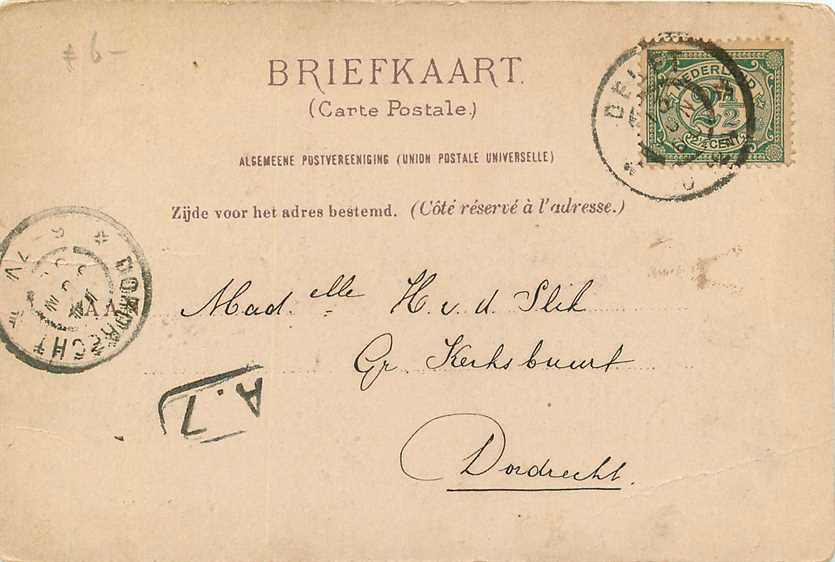 # 6-
BRIEFKAART.
(Carte Postale.)
ALGEMEENE POSTVEREENIGING (UNION POSTALE UNIVERSELLE)
Zijde voor het adres bestemd. (Côté réservé à l'adresse.)
NEDERLAND
2½
2½ CENT
DELFT
DORDRECHT
AAN
Mad.elle H. v. d. Slik
Gr. Kerksbuurt
Dordrecht.
A.7